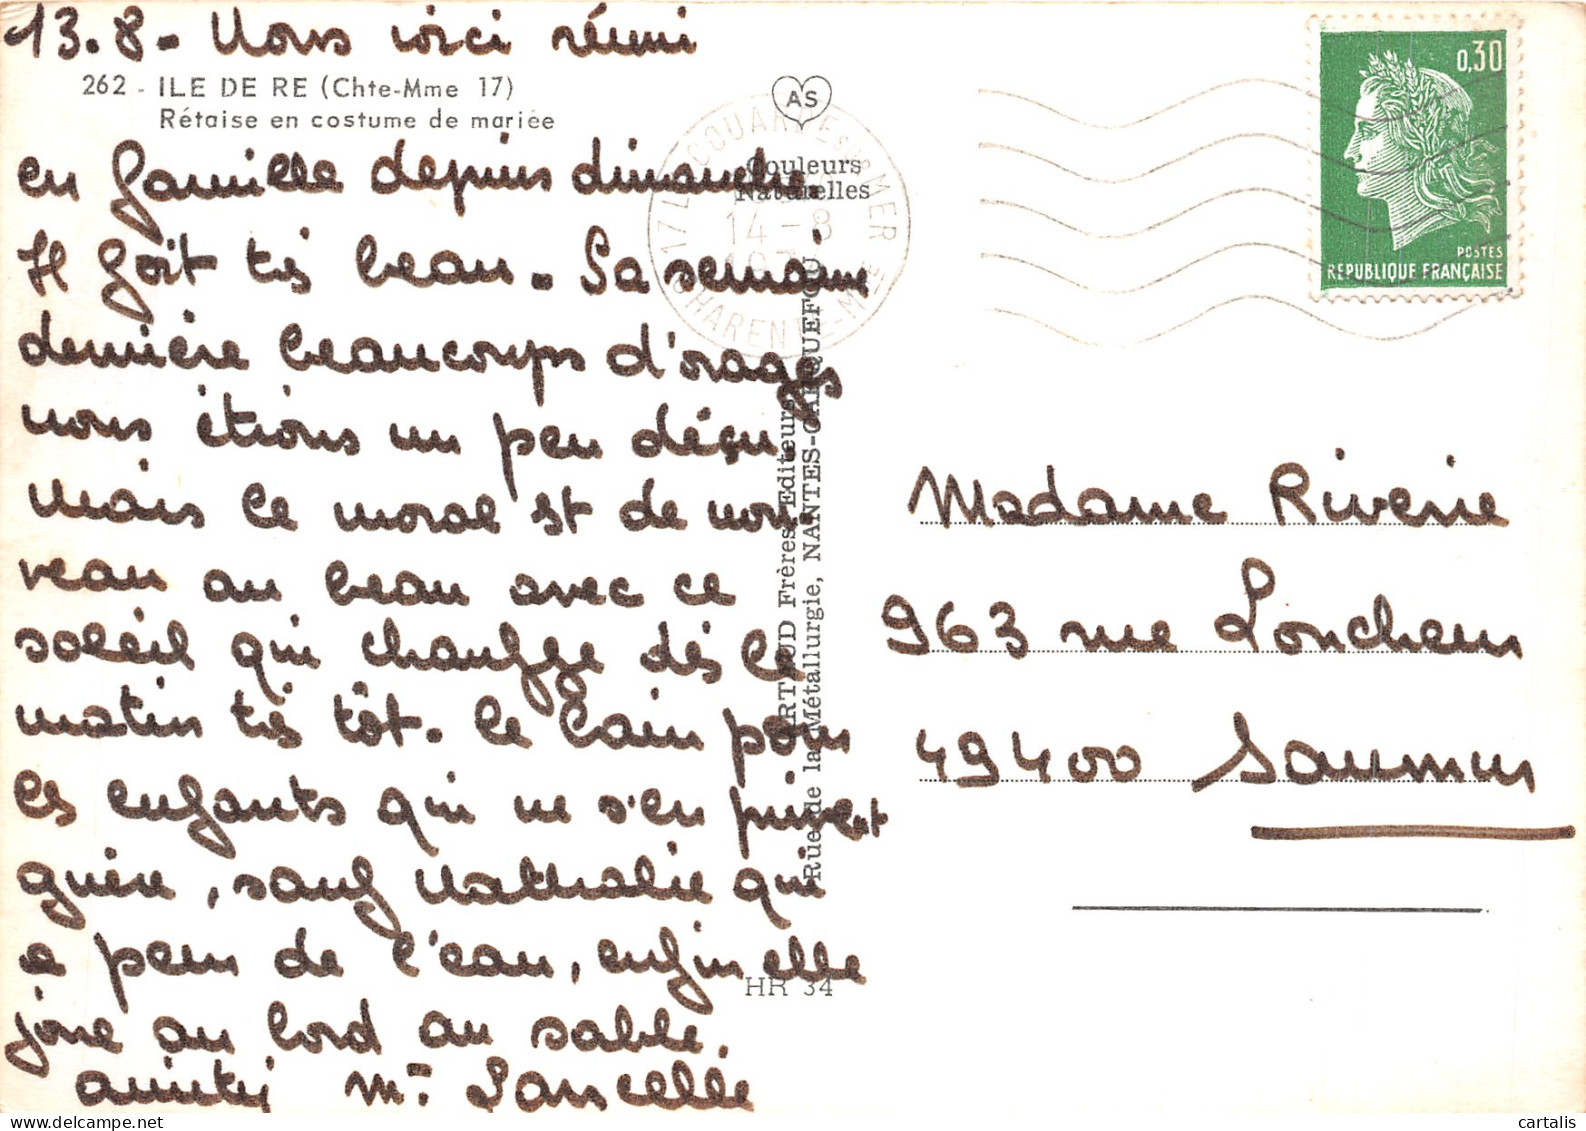 13.8. Nous voici réuni
262 - ILE DE RE (Chte-Mme 17)
Rétaise en costume de mariée
en famille depuis dimanche.
Il fait très beau. La semaine
dernière beaucoups d'orages
nous étions un peu déçu.
mais le moral est de nou-
veau au beau avec ce
soleil qui chauffe dès le
matin très tôt. Le bain pour
les enfants qui ne s'en privent
guère, sauf Nathalie qui
a peur de l'eau, enfin elle
joue au bord au sable.
amitié M. Lancelle
AS
Couleurs
Naturelles
17 LA COUARDE SUR MER
14-8
CHARENTE-Mme
ARTAUD Frères, Editeurs
Rue de la Métallurgie, NANTES-CARQUEFOU
HR 34
0,30
POSTES
REPUBLIQUE FRANÇAISE
Madame Riverie
963 rue Loncheur
49400 Saumur
cartalis